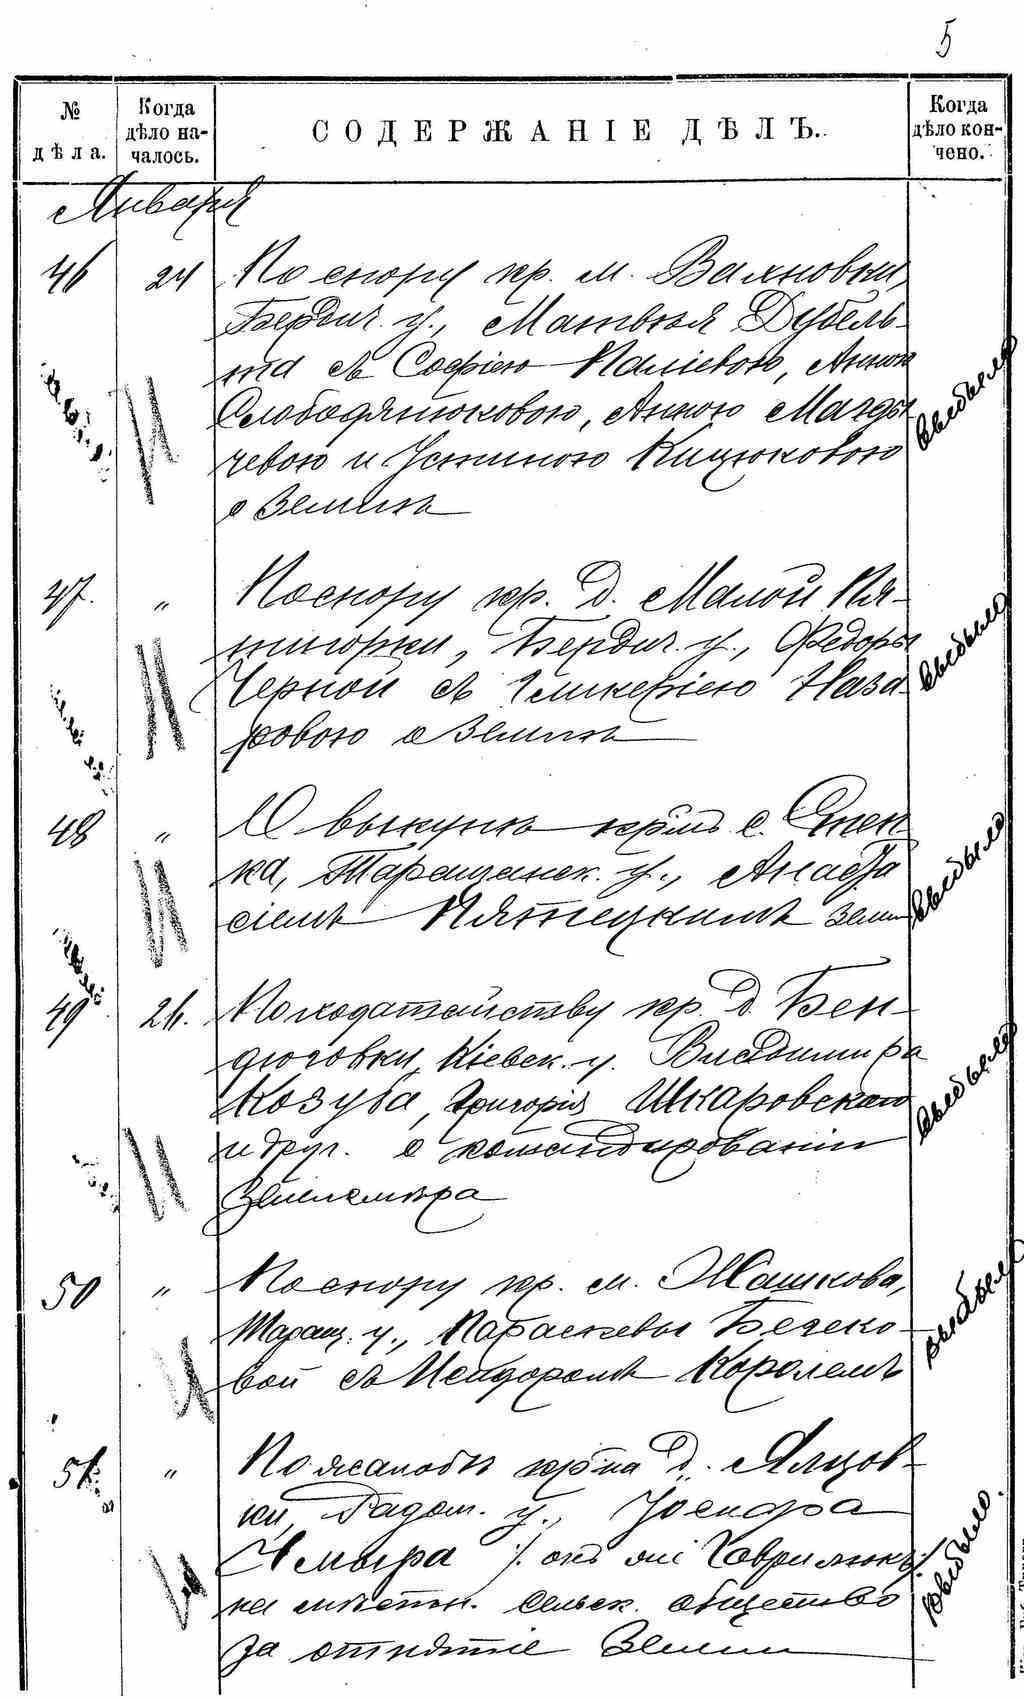 5
№ дѣла.
Когда дѣло началось.
СОДЕРЖАНІЕ ДѢЛЪ.
Когда дѣло кончено.
Января
46 24 По спору кр. м. Вахновки,
Бердич. у., Матвѣя Дубель-
та съ Софіею Паліевою, Анною
Слободянюковою, Анною Магды-
чевою и Устиною Кицюковою
о землѣ
выбыло
47. " По спору кр. д. Малой Пя-
тигорки, Бердич. у., Федоры
Черной съ Гликеріею Наза-
ровою о землѣ
выбыло
48 " О выкупѣ кр-мъ с.
ка, Таращанск. у., Анаста
сіемъ земли
выбыло
49 26. По ходатайству кр. д. Бен-
дюговки, Кіевск. у. Владимира
Козуба, Григорія Шкаровскаго
и друг. о командированіи
землемѣра
выбыло
50 " По спору кр. м. Жашкова,
Таращ. у., Параскевы Бегеко-
вой съ Исидоромъ Королемъ
выбыло
51. " По жалобѣ кр-на д. Ялцов-
ки, Радом. у.,
Хмыра онъ же Гаврилюкъ
на мѣстн. сельск. общество
за отнятіе земли
выбыло.